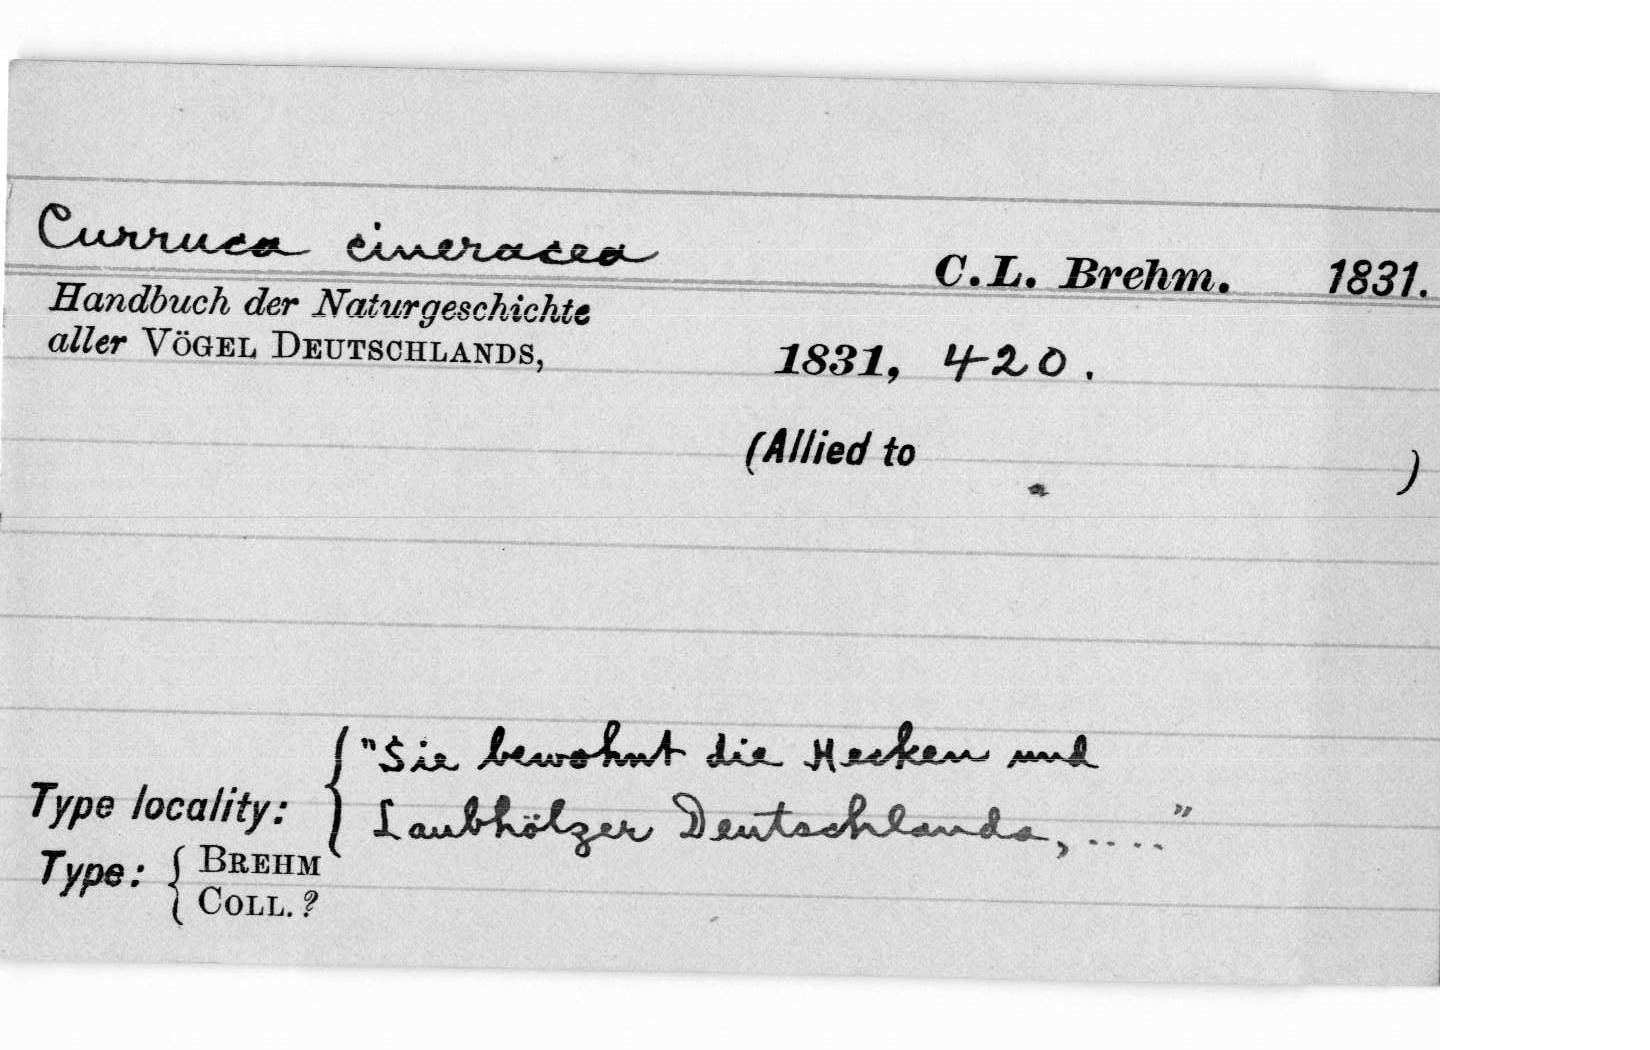 Curruca cineracea
C.L. Brehm. 1831.
Handbuch der Naturgeschichte
aller VÖGEL DEUTSCHLANDS, 1831, 420.
(Allied to )
Type locality: { "Sie bewohnt die Hecken und
Laubhölzer Deutschlands, ...."
Type: { BREHM
COLL. ?